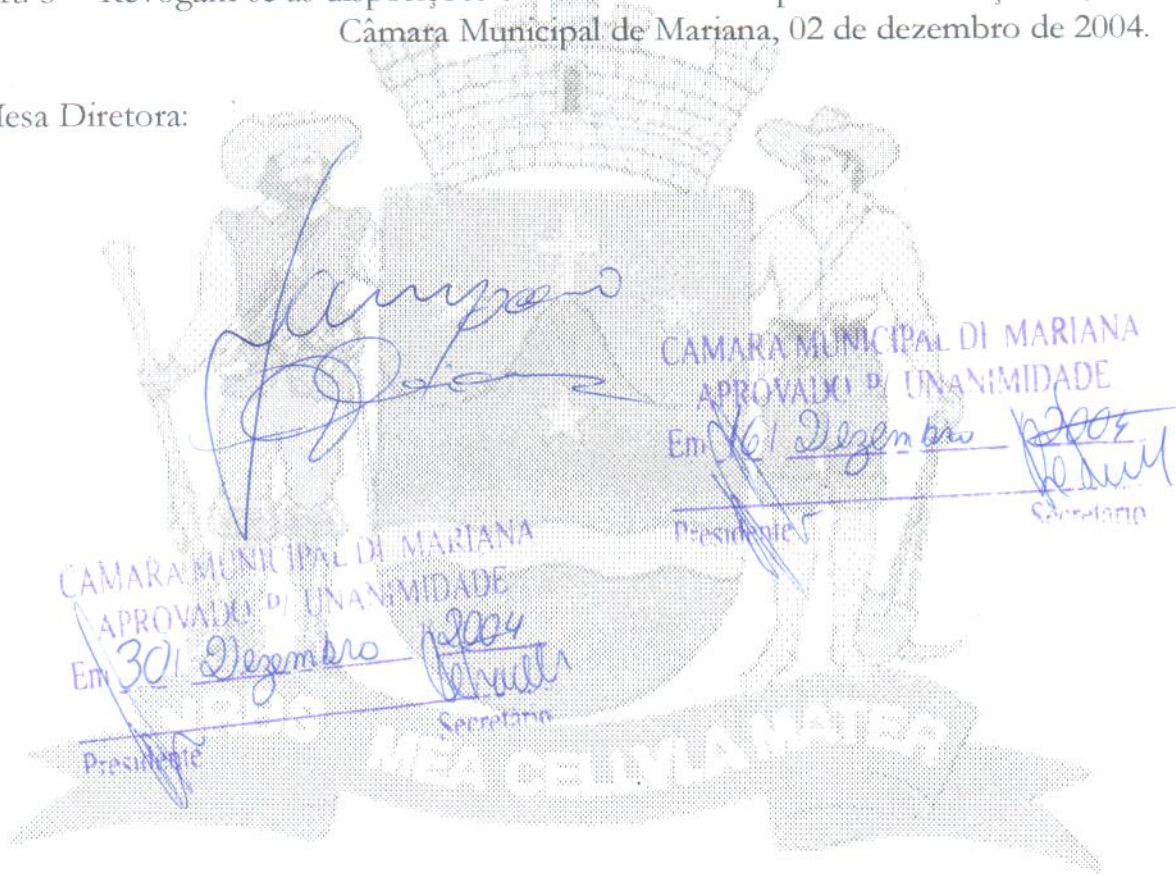 Revogam-se as disposições
Câmara Municipal de Mariana, 02 de dezembro de 2004.
Mesa Diretora:
CAMARA MUNICIPAL DE MARIANA
APROVADO P/ UNANIMIDADE
Em 16 / Dezembro / 2004
Presidente Secretário
CAMARA MUNICIPAL DE MARIANA
APROVADO P/ UNANIMIDADE
Em 30 / Dezembro / 2004
Presidente Secretário
MEA CELLVLA MATER